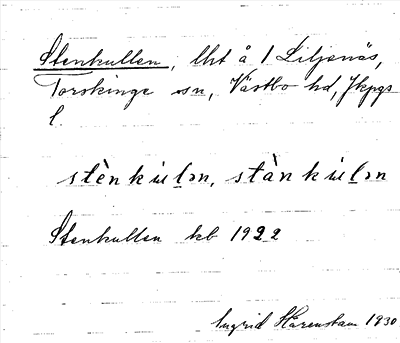 Stenkullen, lht å 1 Liljenäs,
Torskinge sn, Västbo hd, Jkpgs
l.
stènkulən, stànkulən
Stenkullen kb 1922
Ingrid Härenstam 1930